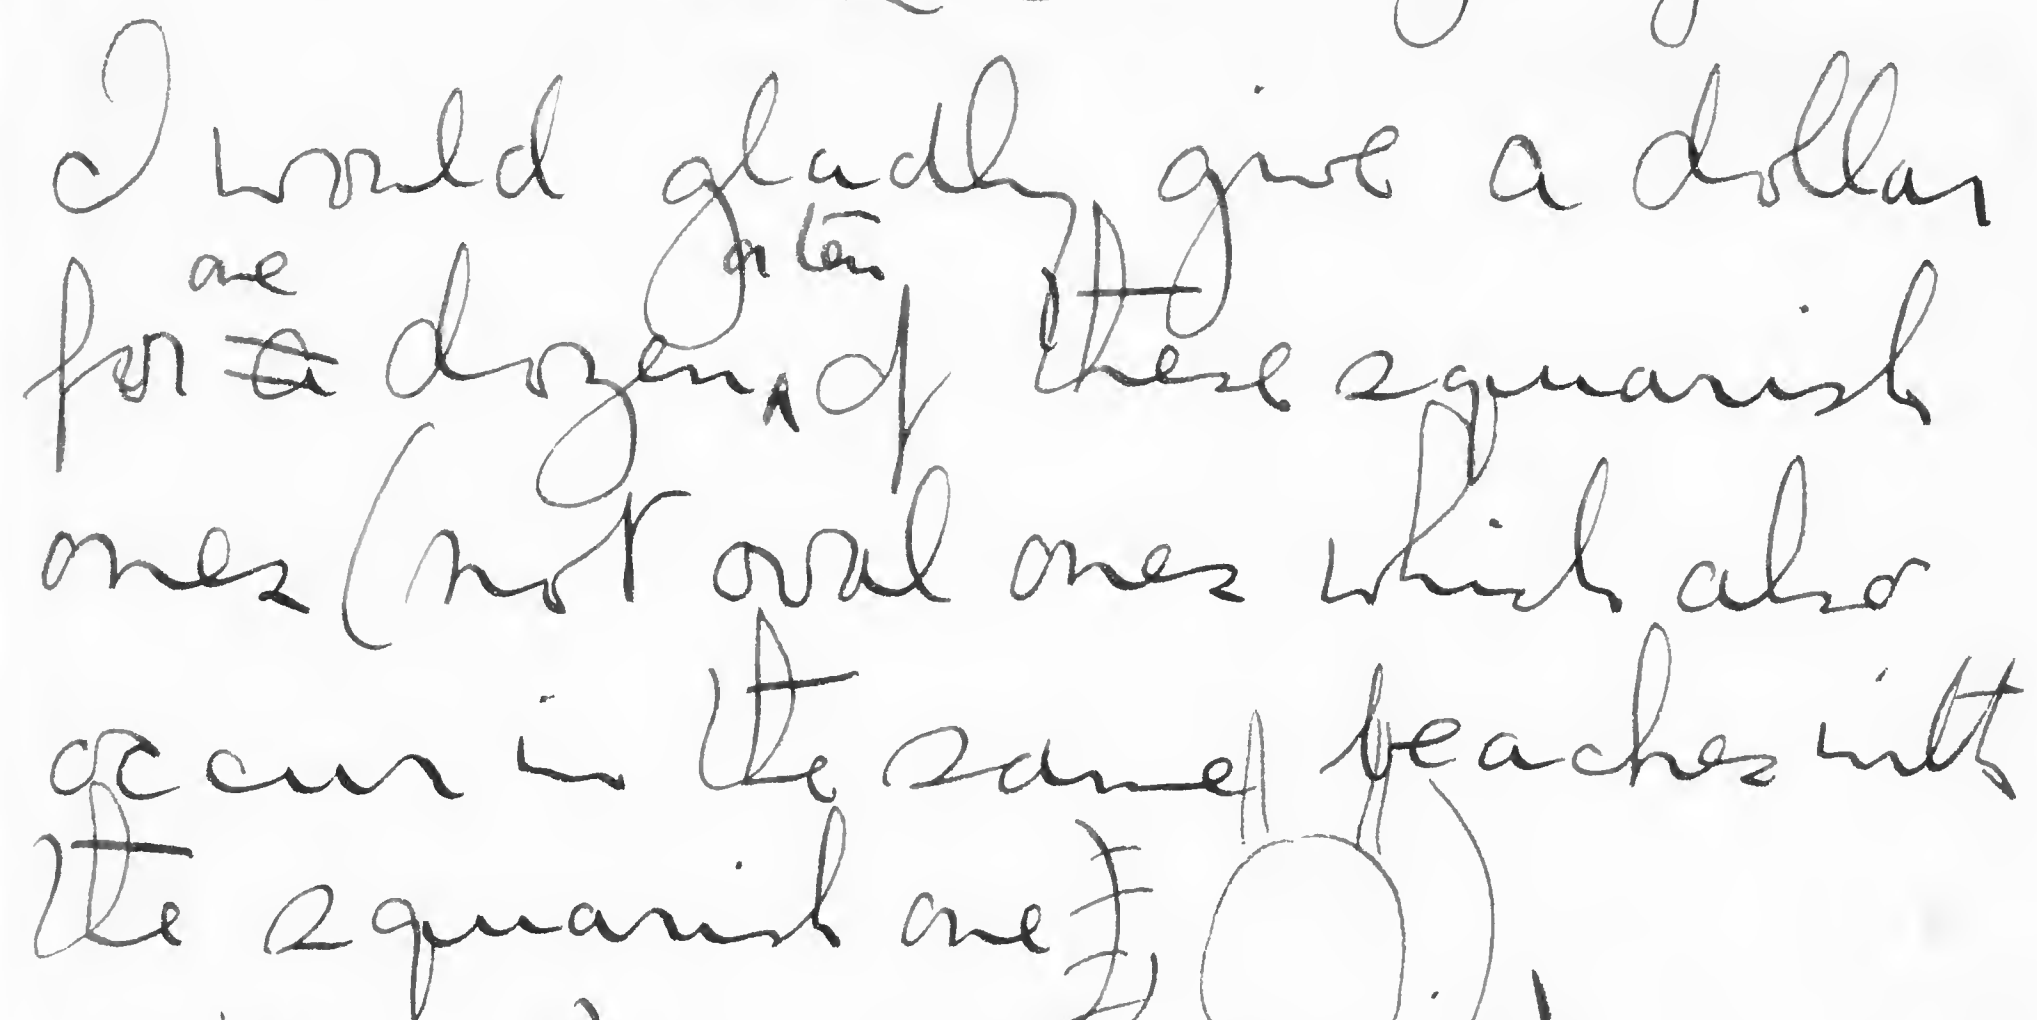 I would gladly give a dollar
for one a dozen or ten of these squarish
ones (not oval ones which also
occur in the same beaches with
the squarish one)